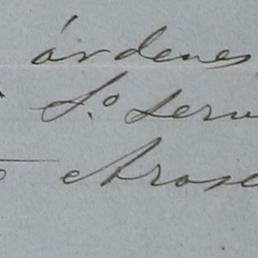 órdenes
S.º Serv
Arose